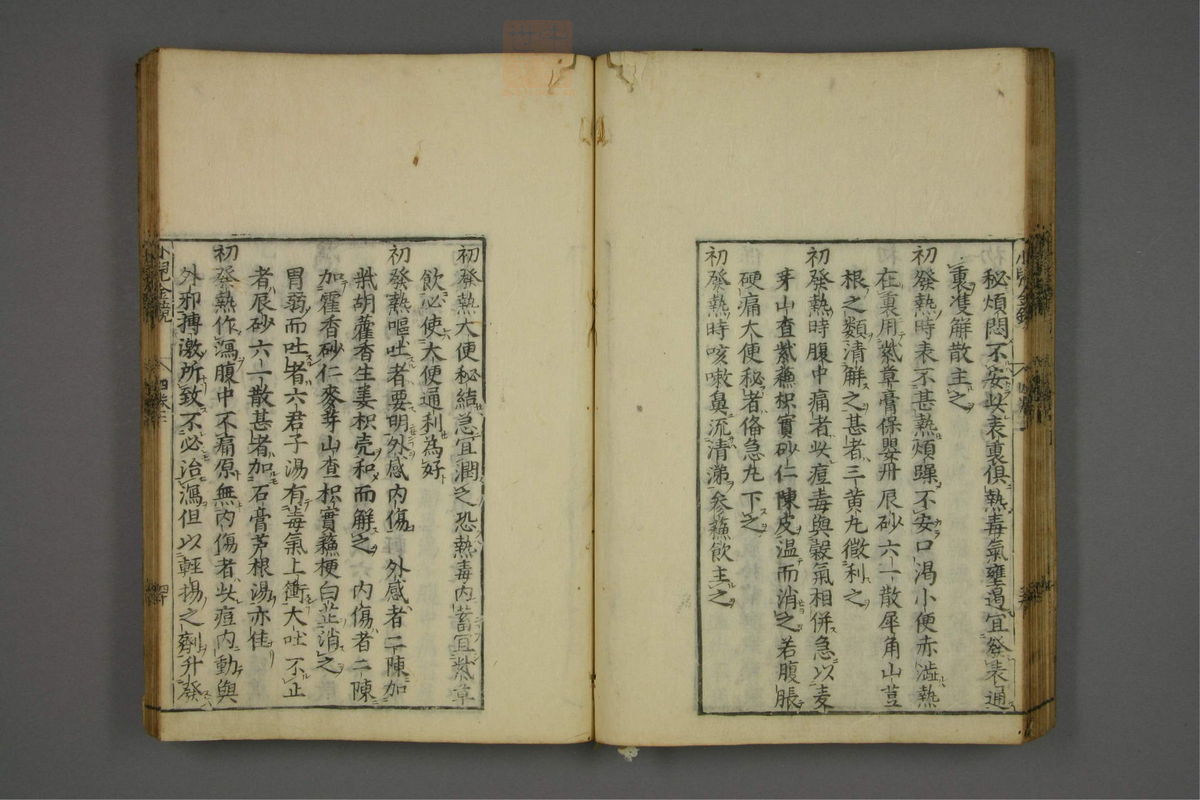 秘煩悶不安此表裏俱熱毒氣壅遏宜發表通
裏雙解散主之
初發熱時表不甚熱煩躁不安口渴小便赤澁熱
在裏用紫草膏保嬰丹辰砂六一散犀角山荳
根之類清解之甚者三黄丸微利之
初發熱時腹中痛者此痘毒與穀氣相併急以麦
芽山查紫蘓枳實砂仁陳皮温而消之若腹脹
硬痛大便秘者俻急丸下之
初發熱時咳嗽鼻流清涕參蘓飲主之
初發熱大便秘結急宜潤之恐熱毒内蓄宜紫草
飲必使大便通利為好
初發熱嘔吐者要明外感内傷外感者二陳加
柴胡藿香生姜枳壳和而解之内傷者二陳
加藿香砂仁麥芽山查枳實蘓梗白芷消之
胃弱而吐者六君子湯有毒氣上衝大吐不止
者辰砂六一散甚者加石膏芦根湯亦佳
初發熱作瀉腹中不痛原無内傷者此痘内動與
外邪搏激所致不必治瀉但以輕揚之劑升發